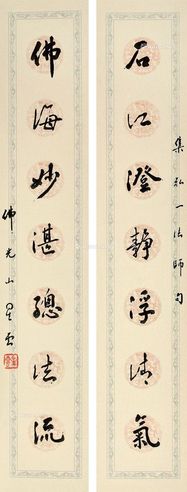 石江澄靜浮清氣
集弘一法師句
佛海妙湛總法流
佛光山星雲